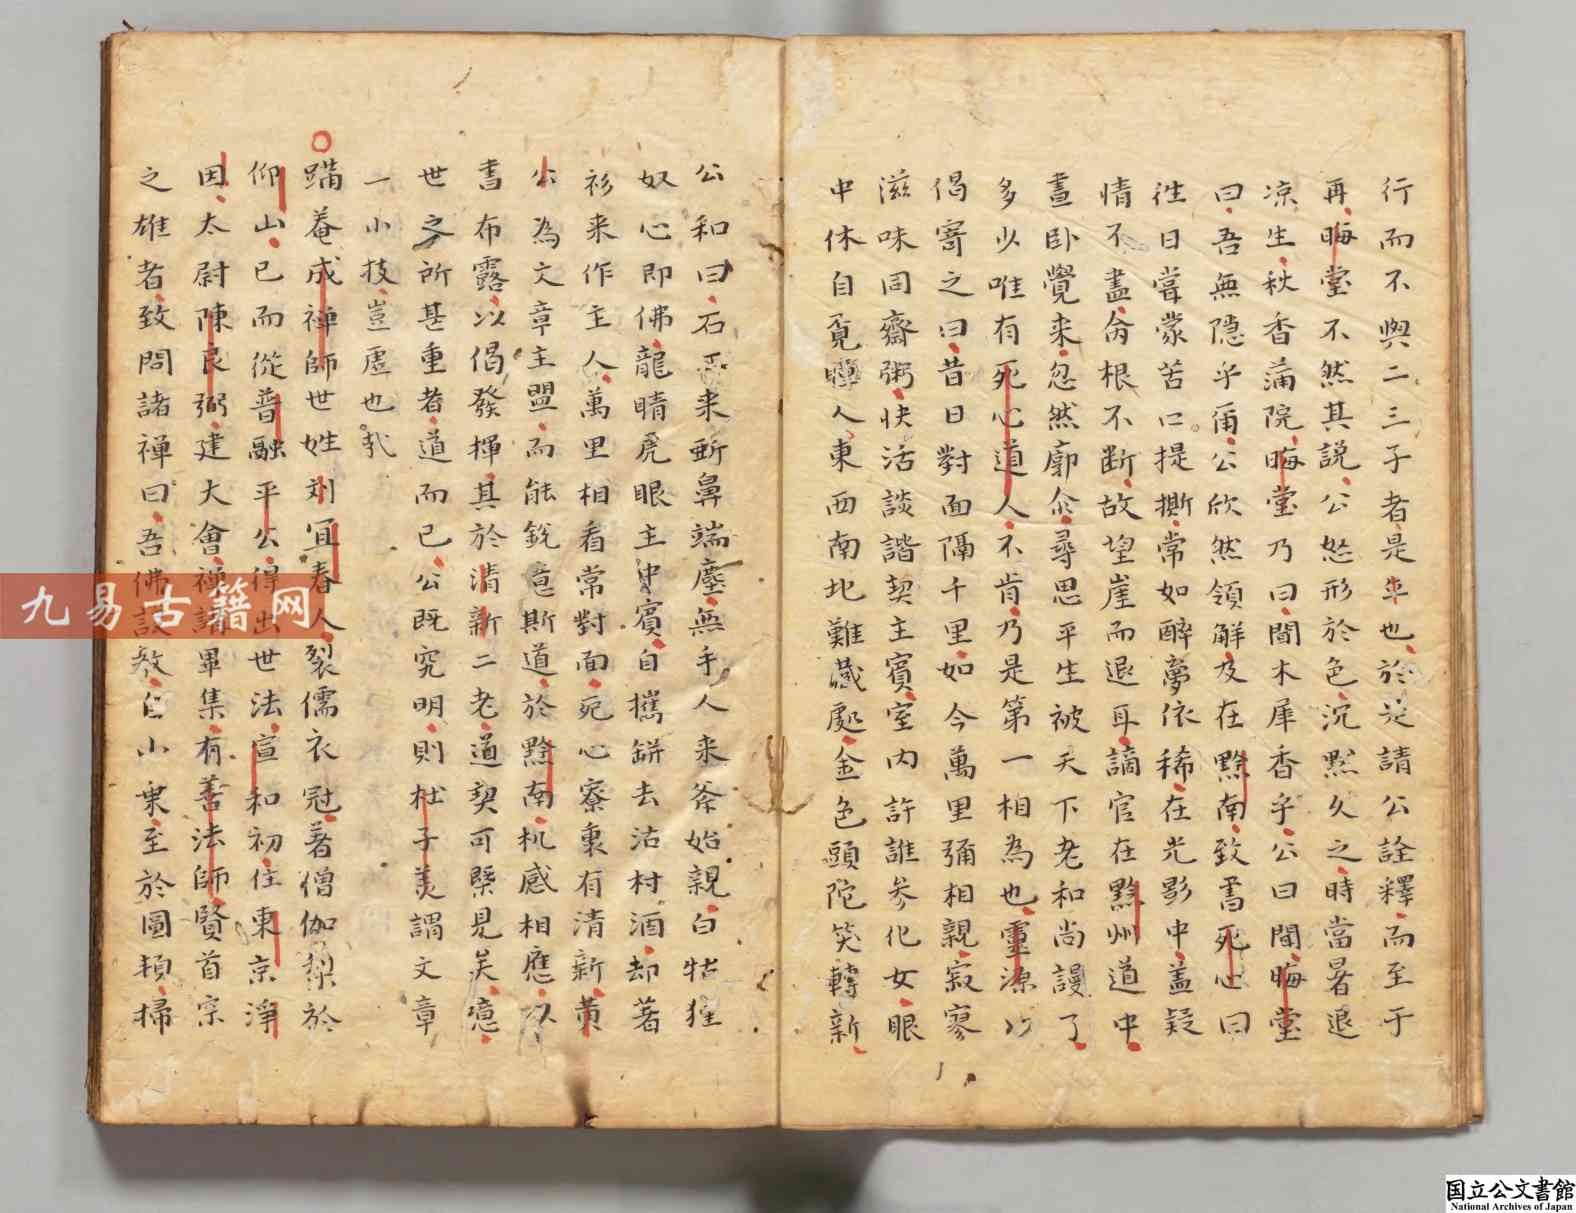 行而不與二三子者是丘也於是請公詮釋而至于
再晦堂不然其説公怒形於色沉默久之時當暑退
凉生秋香蒲院晦堂乃曰聞木犀香乎公曰聞晦堂
曰吾無隱乎爾公欣然領解及在黔南致書死心曰
徃日嘗蒙苦口提撕常如醉夢依稀在光影中盖疑
情不盡命根不断故望崖而退耳謫官在黔州道中
晝卧覺来忽然廓尒尋思平生被天下老和尚謾了
多少唯有死心道人不肯乃是第一相為也靈源以
偈寄之曰昔日對面隔千里如今萬里彌相親寂寥
滋味同齋粥快活談諧契主賓室内許誰参化女眼
中休自覓瞳人東西南北難藏處金色頭陀笑轉新
公和曰石工来斲鼻端塵無手人来斧始親白牯狸
奴心即佛龍睛虎眼主中賓自攜缾去沽村酒却著
衫来作主人萬里相看常對面死心寮裏有清新黄
公為文章主盟而能銳意斯道於黔南机感相應以
書布露以偈發揮其於清新二老道契可槩見矣噫
世之所甚重者道而已公既究明則杜子美謂文章
一小技豈虚也哉
蹣菴成禅師世姓刘冝春人裂儒衣冠著僧伽梨於
仰山已而從普融平公得出世法宣和初住東京淨
因太尉陳良弼建大會禅講畢集有善法師賢首宗
之雄者致問諸禅曰吾佛設教自小乗至於圎頓掃
九易古籍网
国立公文書館
National Archives of Japan